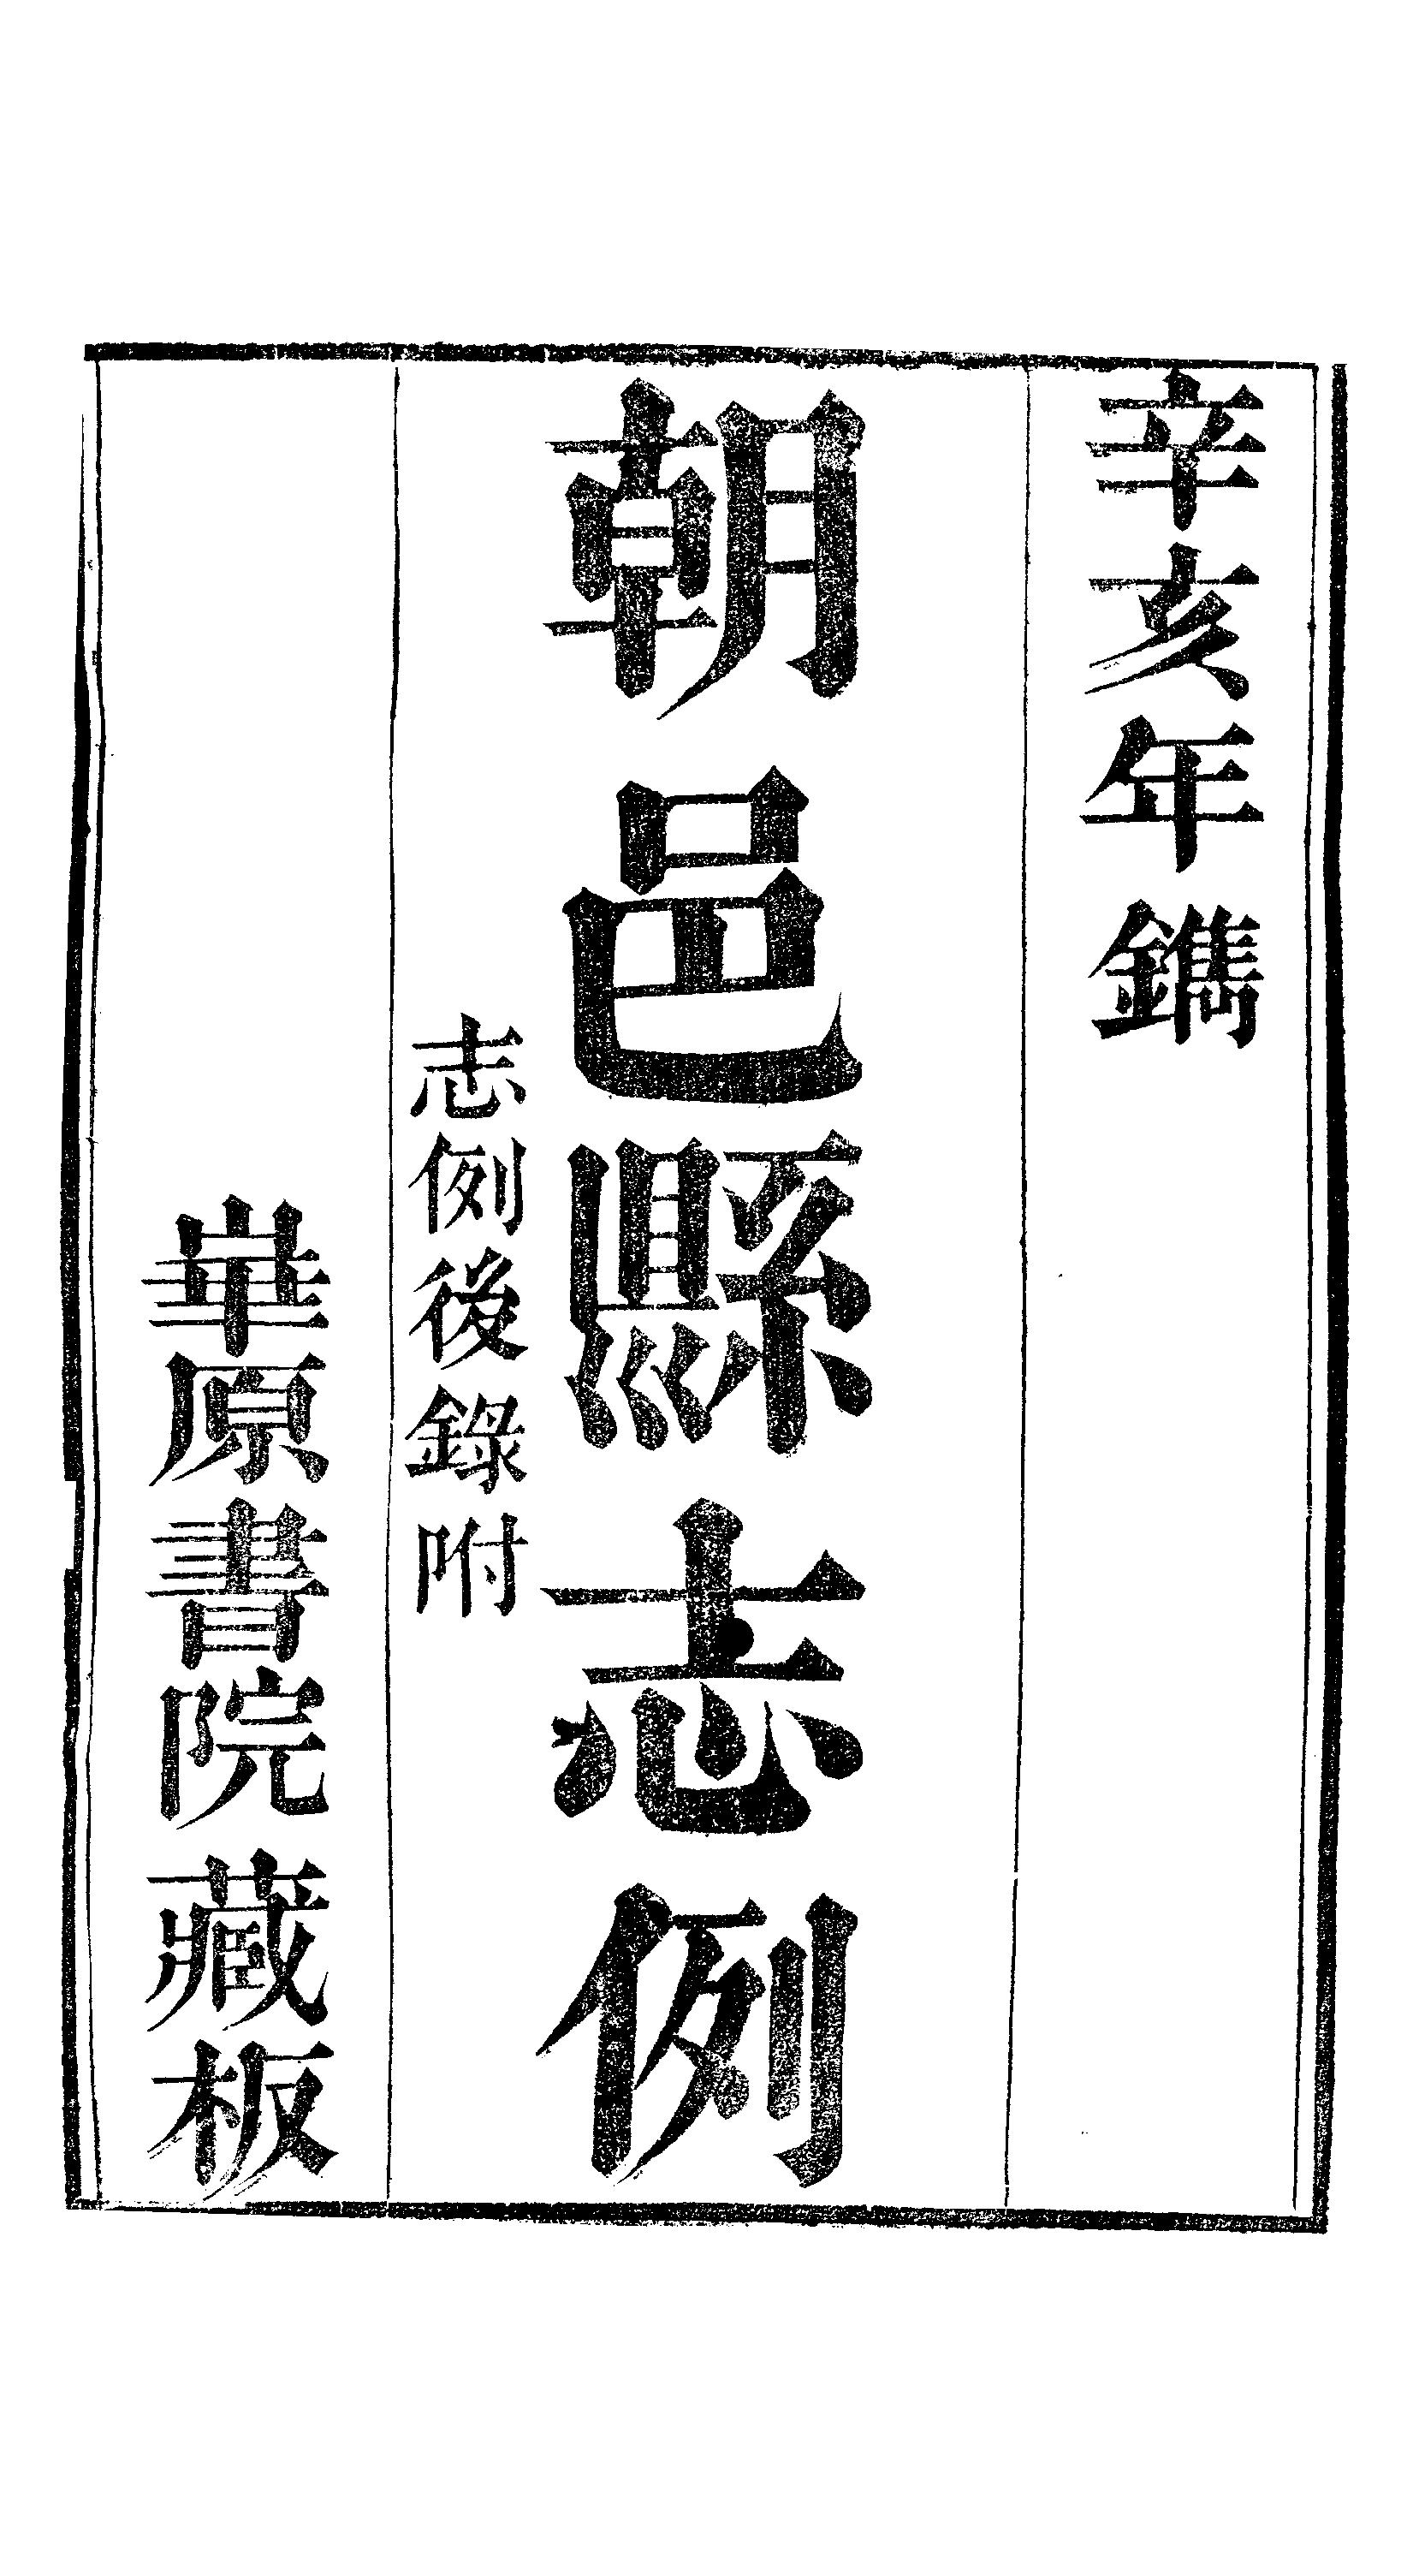 辛亥年鐫
朝邑縣志例
志例後錄附
華原書院藏板